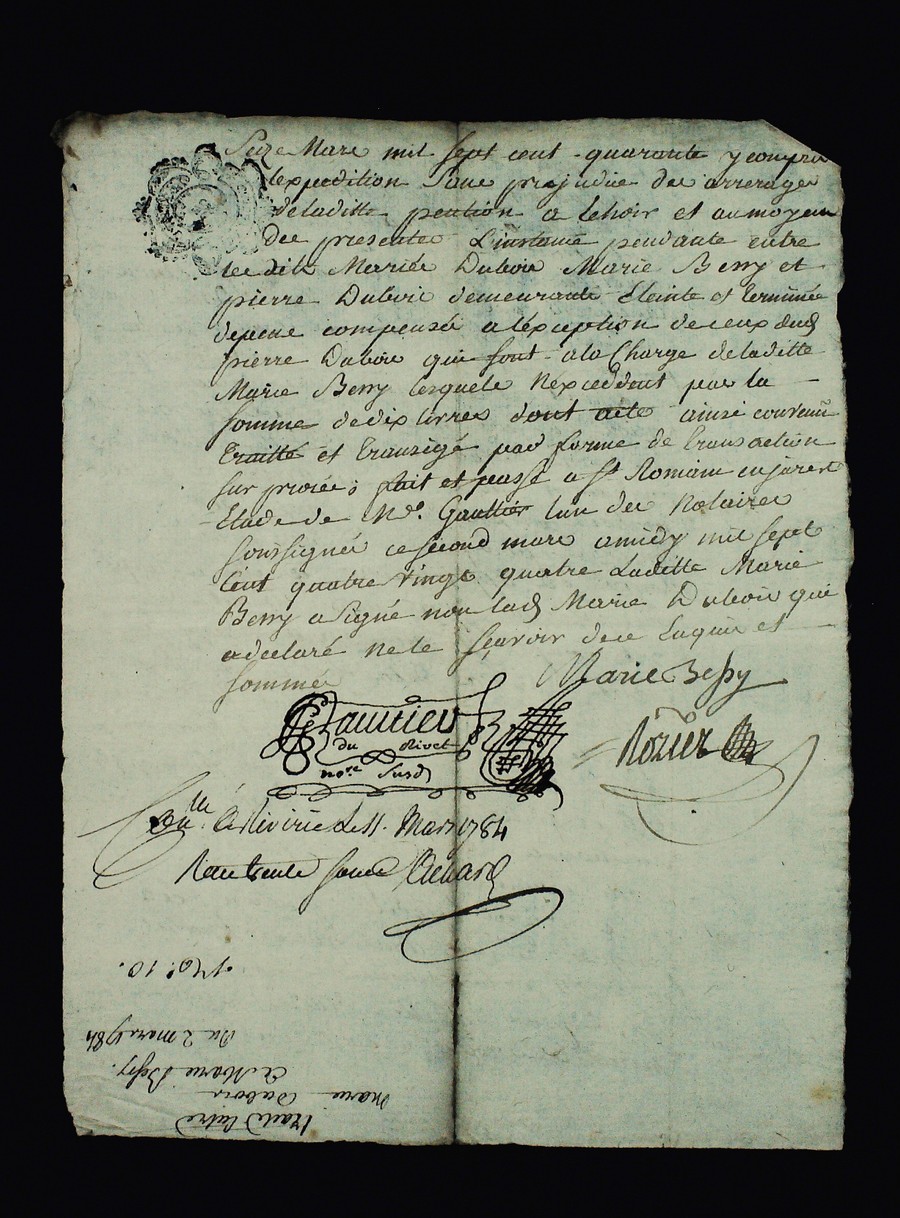 Seize Mars mil sept cent quarante y compris
lexpedition sans prejudice des arrerages
deladitte pention a lehoir et aumoyen
des presentes Linstance pendante entre
lesdits Mariés Dubois Marie Bessy et
pierre Dubois demeurante Eteinte et terminée
depens compensés a léxception de ceux dud
pierre Dubois qui sont ala Charge deladitte
Marie Bessy lesquels Néxceddent pas la
somme de dix livres dont acte ainsi convenu
traitté et transigé par forme de transaction
sur procés; fait et passé a St Romain en jarest
Etude de Me. Gaultier lun des Notaires
soussignés ce second mars amidy mil sept
Cent quatre vingt quatre Laditte Marie
Bessy a signé non lad Marie Dubois qui
a declaré ne le sçavoir dece Enquis et
sommée
Marie Bessy
Gaultier
du Rivet
nore. susd
Rozier
Conllé. A Rivirie Le 11. Mars 1784
Reçu trente sous
1784. 10.
Du 2 mars 1784
& Marie Bessy.
marie dubois
traité entre